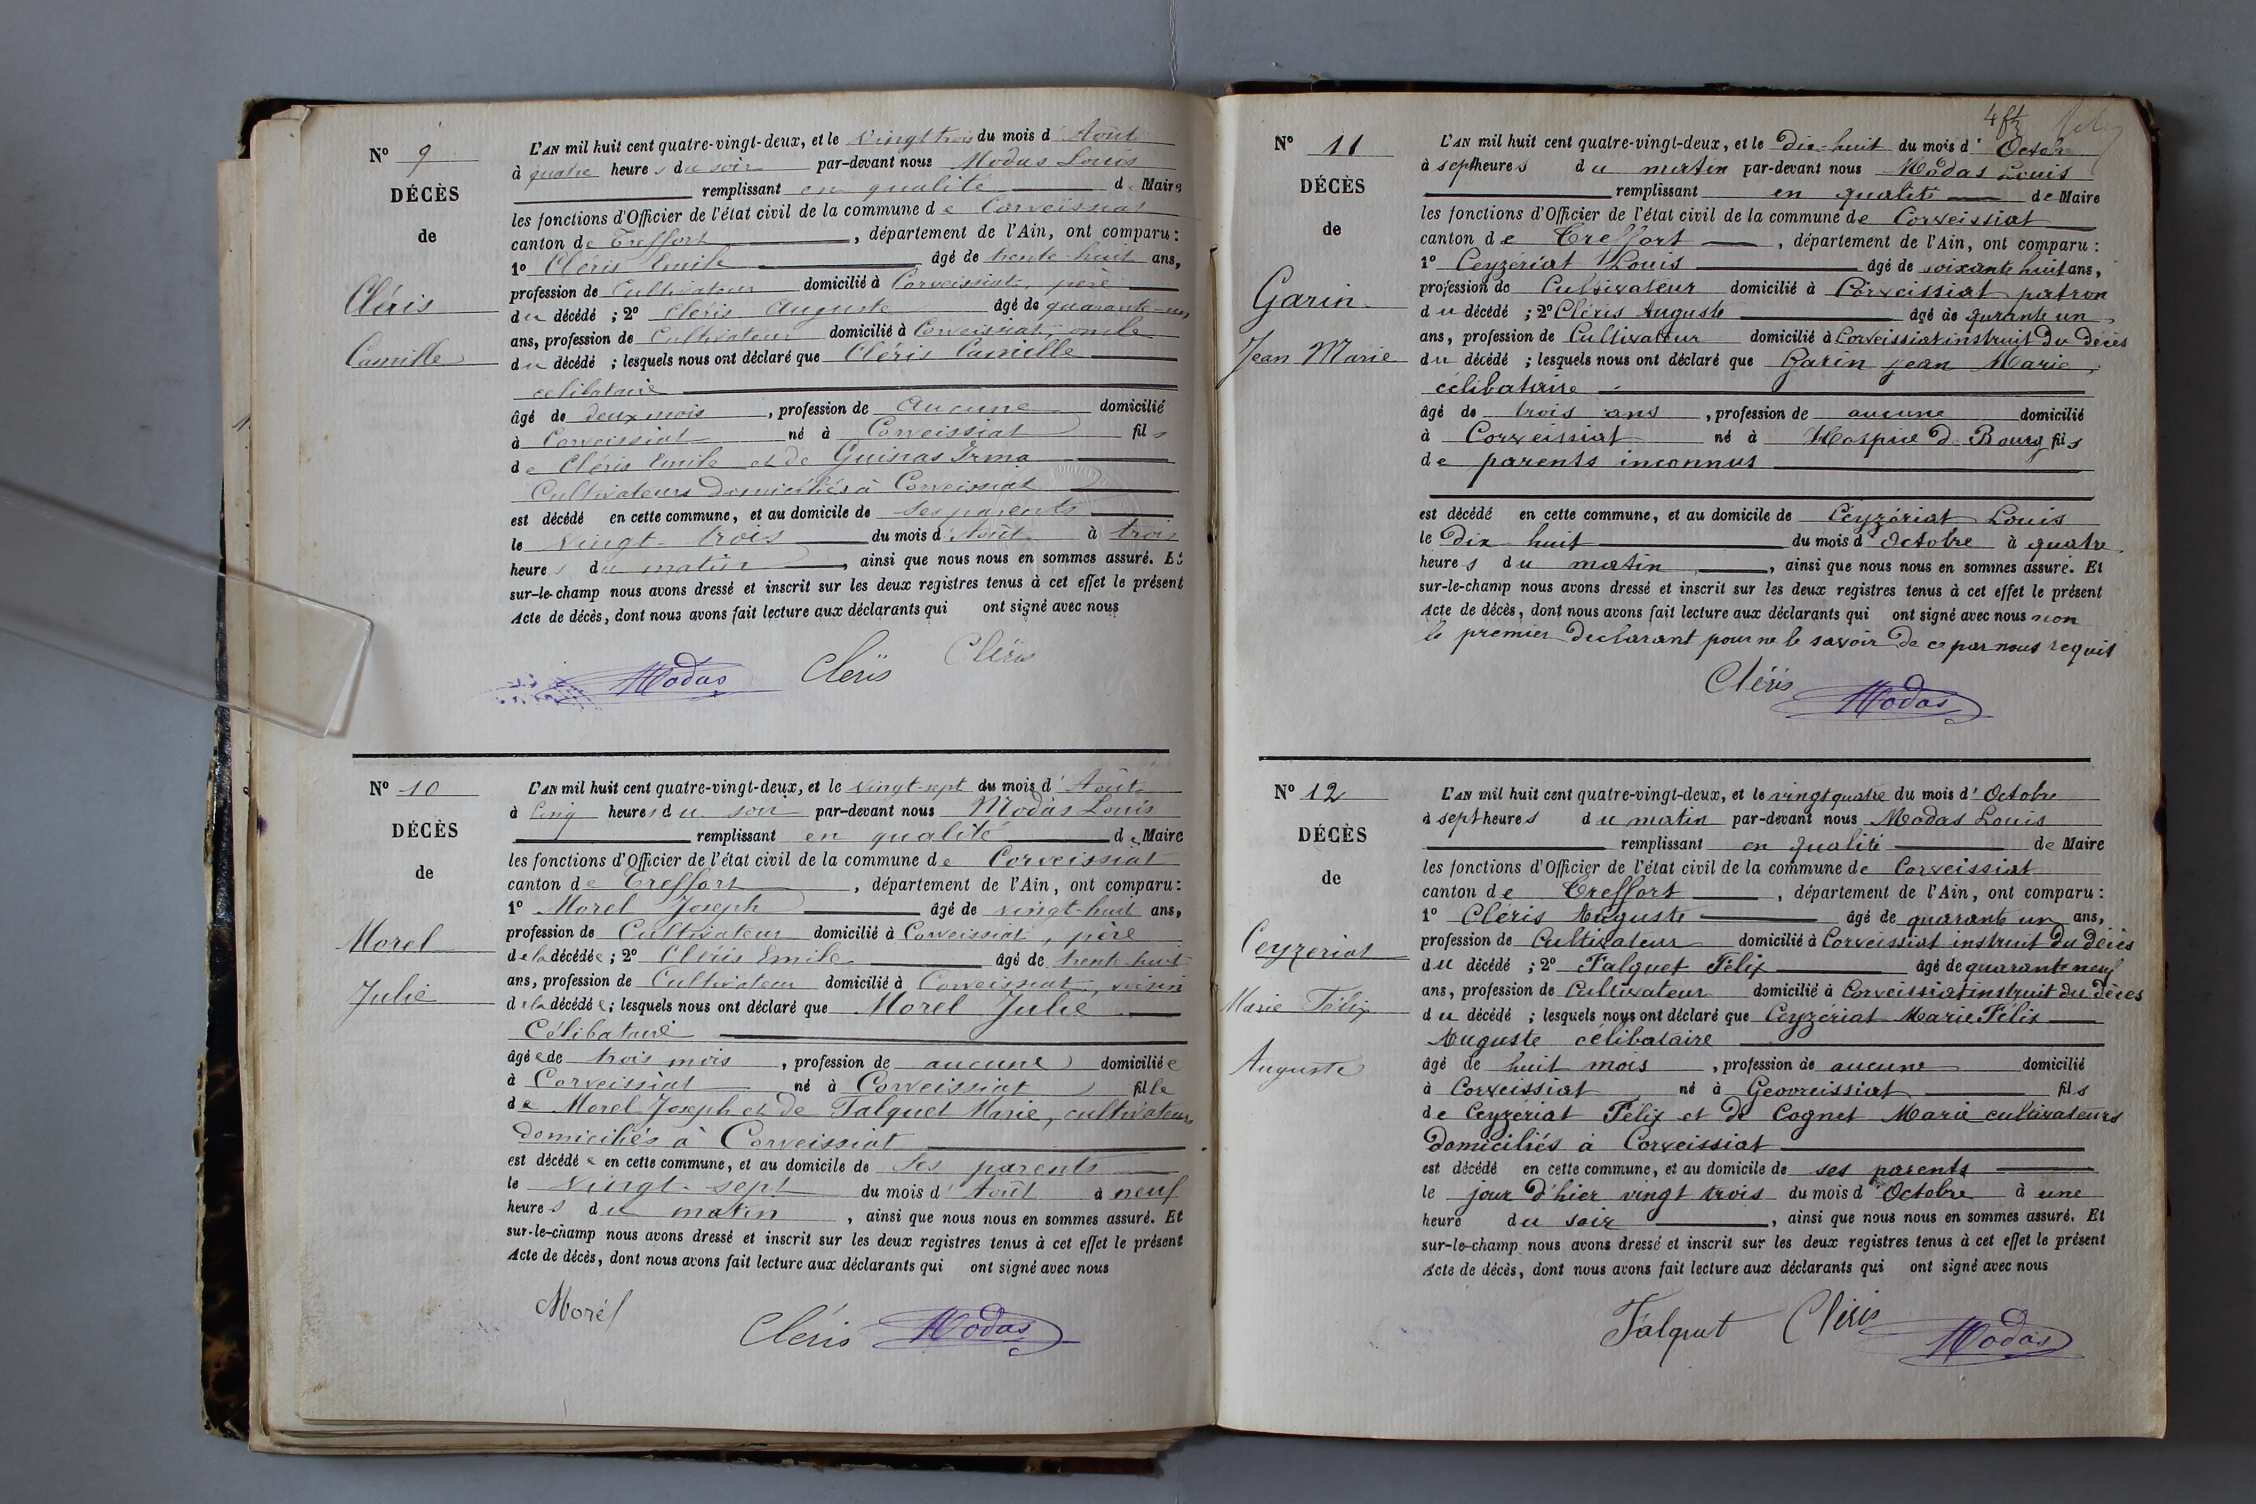 N° 9
DÉCÈS
de
Cléris
Camille
L'AN mil huit cent quatre-vingt-deux, et le vingt trois du mois d'Août
à quatre heures du soir par-devant nous Modas Louis
remplissant en qualité de Maire
les fonctions d'Officier de l'état civil de la commune de Corveissiat
canton de Treffort, département de l'Ain, ont comparu :
1° Cléris Emile âgé de trente huit ans,
profession de Cultivateur domicilié à Corveissiat, père
du décédé ; 2° Cléris Auguste âgé de quarante-un
ans, profession de Cultivateur domicilié à Corveissiat, oncle
du décédé ; lesquels nous ont déclaré que Cléris Camille
célibataire
âgé de deux mois, profession de aucune domicilié
à Corveissiat né à Corveissiat fils
de Cléris Emile et de Guinas Irma
Cultivateurs domiciliés à Corveissiat
est décédé en cette commune, et au domicile de ses parents
le vingt-trois du mois d'Août à trois
heures du matin, ainsi que nous nous en sommes assuré. Et
sur-le-champ nous avons dressé et inscrit sur les deux registres tenus à cet effet le présent
Acte de décès, dont nous avons fait lecture aux déclarants qui ont signé avec nous
Modas Cléris Cléris
N° 10
DÉCÈS
de
Morel
Julie
L'AN mil huit cent quatre-vingt-deux, et le vingt-sept du mois d'Août
à cinq heures du soir par-devant nous Modas Louis
remplissant en qualité de Maire
les fonctions d'Officier de l'état civil de la commune de Corveissiat
canton de Treffort, département de l'Ain, ont comparu :
1° Morel Joseph âgé de vingt-huit ans,
profession de Cultivateur domicilié à Corveissiat, père
de la décédée ; 2° Cléris Emile âgé de trente huit
ans, profession de Cultivateur domicilié à Corveissiat, voisin
de la décédée ; lesquels nous ont déclaré que Morel Julie
Célibataire
âgée de trois mois, profession de aucune domiciliée
à Corveissiat né à Corveissiat fille
de Morel Joseph et de Falquet Marie, cultivateurs
domiciliés à Corveissiat
est décédée en cette commune, et au domicile de ses parents
le vingt-sept du mois d'Août à neuf
heures du matin, ainsi que nous nous en sommes assuré. Et
sur-le-champ nous avons dressé et inscrit sur les deux registres tenus à cet effet le présent
Acte de décès, dont nous avons fait lecture aux déclarants qui ont signé avec nous
Morel
Cléris Modas
N° 11
DÉCÈS
de
Garin
Jean Marie
L'AN mil huit cent quatre-vingt-deux, et le dix-huit du mois d'Octobre
à sept heures du matin par-devant nous Modas Louis
remplissant en qualité de Maire
les fonctions d'Officier de l'état civil de la commune de Corveissiat
canton de Treffort, département de l'Ain, ont comparu :
1° Ceyzériat Louis âgé de soixante huit ans,
profession de Cultivateur domicilié à Corveissiat patron
du décédé ; 2° Cléris Auguste âgé de qurante un
ans, profession de Cultivateur domicilié à Corveissiat instruit du décès
du décédé ; lesquels nous ont déclaré que Garin jean Marie,
célibataire
âgé de trois ans, profession de aucune domicilié
à Corveissiat né à Hospice d Bourg fils
de parents inconnus
est décédé en cette commune, et au domicile de Ceyzériat Louis
le Dix huit du mois d'Octobre à quatre
heures du matin, ainsi que nous nous en sommes assuré. Et
sur-le-champ nous avons dressé et inscrit sur les deux registres tenus à cet effet le présent
Acte de décès, dont nous avons fait lecture aux déclarants qui ont signé avec nous non
le premier declarant pour ne le savoir de ce par nous requis
Cléris Modas
N° 12
DÉCÈS
de
Ceyzeriat
Marie Félix
Auguste
L'AN mil huit cent quatre-vingt-deux, et le vingt quatre du mois d'Octobre
à sept heures du matin par-devant nous Modas Louis
remplissant en qualité de Maire
les fonctions d'Officier de l'état civil de la commune de Corveissiat
canton de Treffort, département de l'Ain, ont comparu :
1° Cléris Auguste âgé de quarante un ans,
profession de Cultivateur domicilié à Corveissiat instruit du décès
du décédé ; 2° Falquet Félix âgé de quarante neuf
ans, profession de Cultivateur domicilié à Corveissiat instruit du décès
du décédé ; lesquels nous ont déclaré que Ceyzériat Marie Félix
Auguste célibataire
âgé de huit mois, profession de aucune domicilié
à Corveissiat né à Geovreissiat fils
de Ceyzériat Félix et de Cognet Marie cultivateurs
domiciliés à Corveissiat
est décédé en cette commune, et au domicile de ses parents
le jour d'hier vingt trois du mois d'Octobre à une
heure du soir, ainsi que nous nous en sommes assuré. Et
sur-le-champ nous avons dressé et inscrit sur les deux registres tenus à cet effet le présent
Acte de décès, dont nous avons fait lecture aux déclarants qui ont signé avec nous
Falquet Cléris Modas